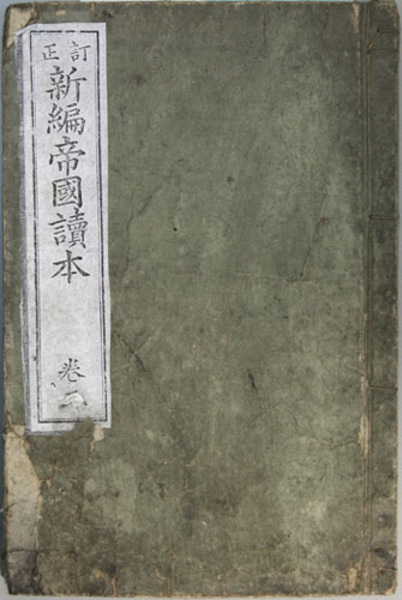 訂正
新編帝國讀本
卷二